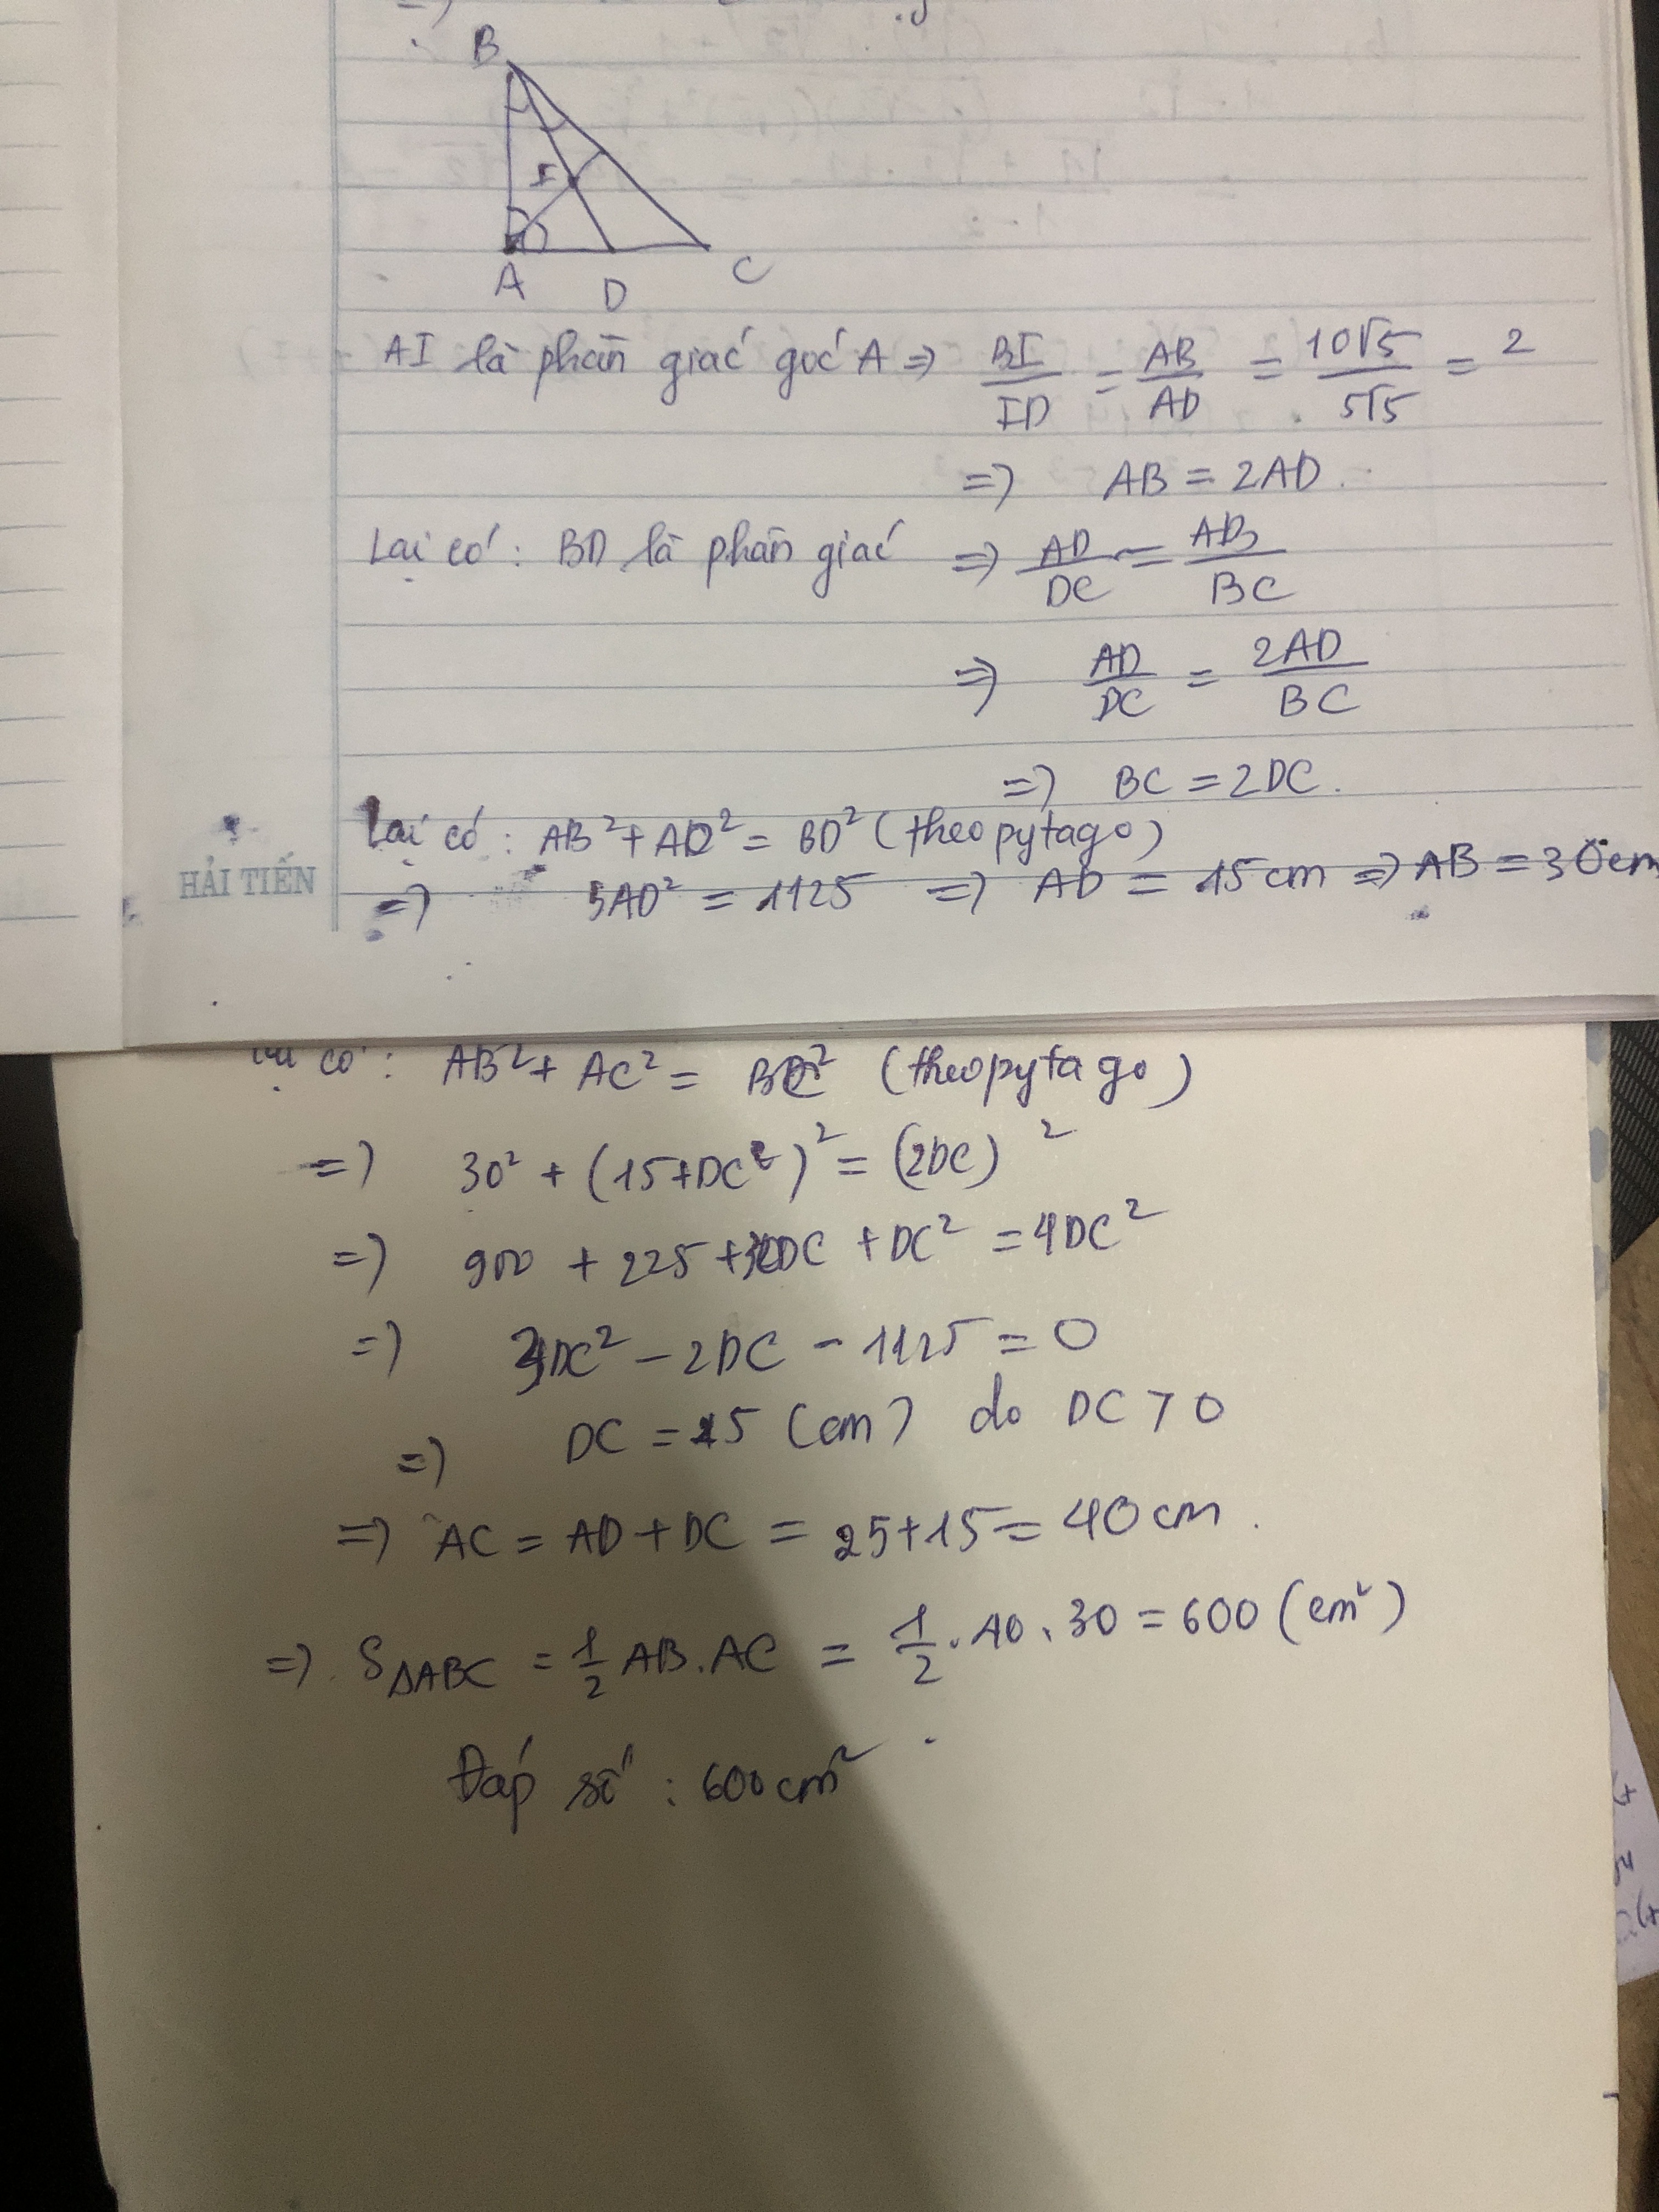 B
I
A D C
AI là phân giác góc A => BI/ID = AB/AD = 10√5/5√5 = 2
=> AB = 2AD.
Lại có: BD là phân giác => AD/DC = AB/BC
=> AD/DC = 2AD/BC
=> BC = 2DC.
Lại có: AB² + AD² = BD² (theo pytago)
=> 5AD² = 1125 => AD = 15cm => AB = 30cm
HẢI TIẾN
Lại có: AB² + AC² = BC² (theo pytago)
=> 30² + (15+DC²)² = (2DC)²
=> 900 + 225 + 30DC + DC² = 4DC²
=> 3DC² - 2DC - 1125 = 0
=> DC = 25 (cm) do DC > 0
=> AC = AD + DC = 25+15 = 40cm.
=> S△ABC = 1/2 AB.AC = 1/2 . 40 . 30 = 600 (cm²)
Đáp số: 600cm²